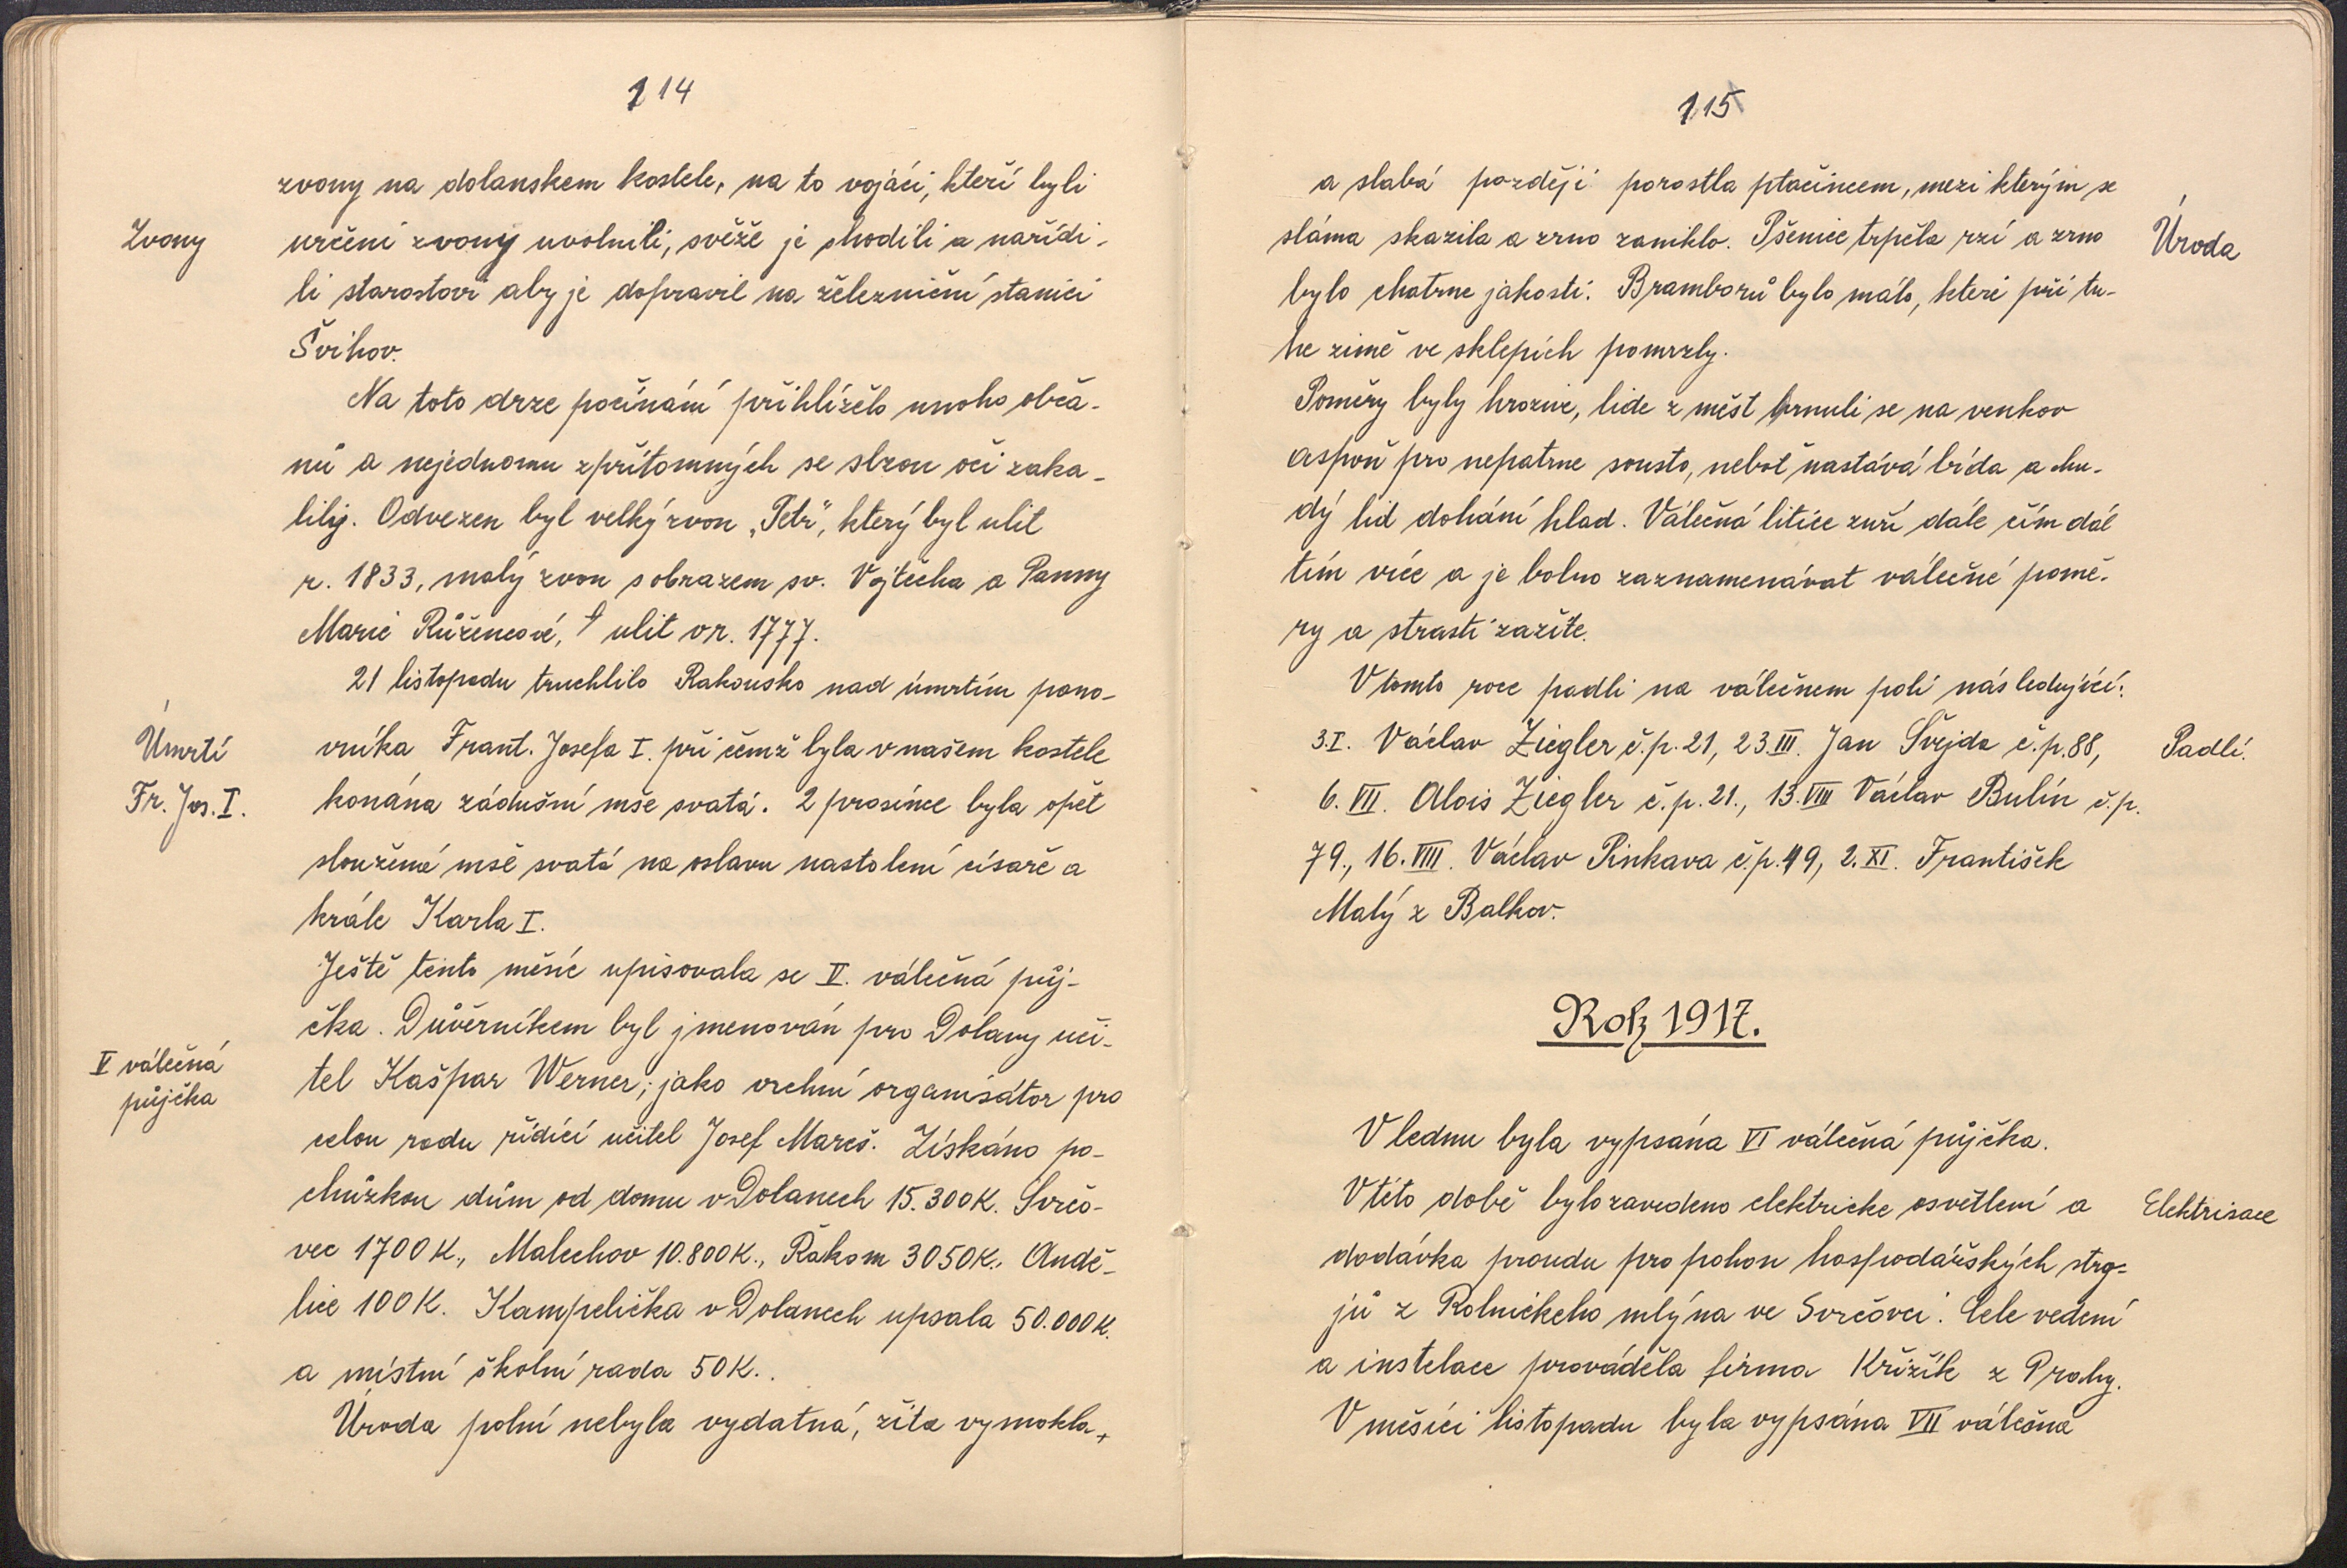 114
zvony na dolanskem kostele, na to vojáci, kteří byli
Zvony
určeni zvony uvolnili, svěže je shodili a nařídi-
li starostovi aby je dopravil na železniční stanici
Švihov.
Na toto drze počínání přihlíželo mnoho obča-
nů a nejednomu zpřítomných se slzou oči zaka-
lily. Odvezen byl velký zvon „Petr", který byl ulit
r. 1833, malý zvon s obrazem sv. Vojtěcha a Panny
Marie Růžencové, ulit v r. 1777.
21 listopadu truchlilo Rakousko nad úmrtím pano-
Úmrtí
vníka Frant. Josefa I. při čemž byla v našem kostele
Fr. Jos. I.
konána zádušní mše svatá. 2 prosince byla opět
sloužená mše svatá na oslavu nastolení císaře a
krále Karla I.
Ještě tento měsíc upisovala se V. válečná půj-
čka. Důvěrníkem byl jmenován pro Dolany uči-
V válečná
půjčka
tel Kašpar Werner; jako vrchní organisátor pro
celou radu řídící učitel Josef Mareš. Získáno po-
chůzkou dům od domu v Dolanech 15.300K. Svrčo-
vec 1700K., Malechov 10.800K., Řakom 3050K., Andě-
lice 100K. Kampelička v Dolanech upsala 50.000K.
a místní školní rada 50K..
Úroda polní nebyla vydatná, žita vymokla,
115
a slabá později porostla ptačincem, mezi kterým se
sláma skazila a zrno zaniklo. Pšenice trpěla rzí a zrno
Úroda
bylo chatrne jakosti. Bramborů bylo málo, které při tu-
he zimě ve sklepích pomrzly.
Poměry byly hrozné, lide z měst hrnuli se na venkov
aspoň pro nepatrne sousto, neboť nastává bída a chu-
dý lid dohání hlad. Válečná litice zuří dále čím dál
tím více a je bolno zaznamenávat válečné pomě-
ry a strasti zažite.
V tomto roce padli na válečnem poli následující:
3.I. Václav Ziegler č.p. 21, 23.III. Jan Švejda č.p. 88,
Padlí.
6. VII. Alois Ziegler č.p. 21., 13.VIII Václav Bulín č.p.
79., 16.VIII. Václav Pinkava č.p. 49, 2.XI. František
Malý z Balkov.
Rok 1917.
V lednu byla vypsána VI válečná půjčka.
V této době bylo zavedeno elektricke osvětlení a
Elektrisace
dodávka proudu pro pohon hospodářských stro-
jů z Rolnického mlýna ve Svrčovci. Cele vedení
a instelace prováděla firma Křižík z Prahy.
V měsíci listopadu byla vypsána VII válečná